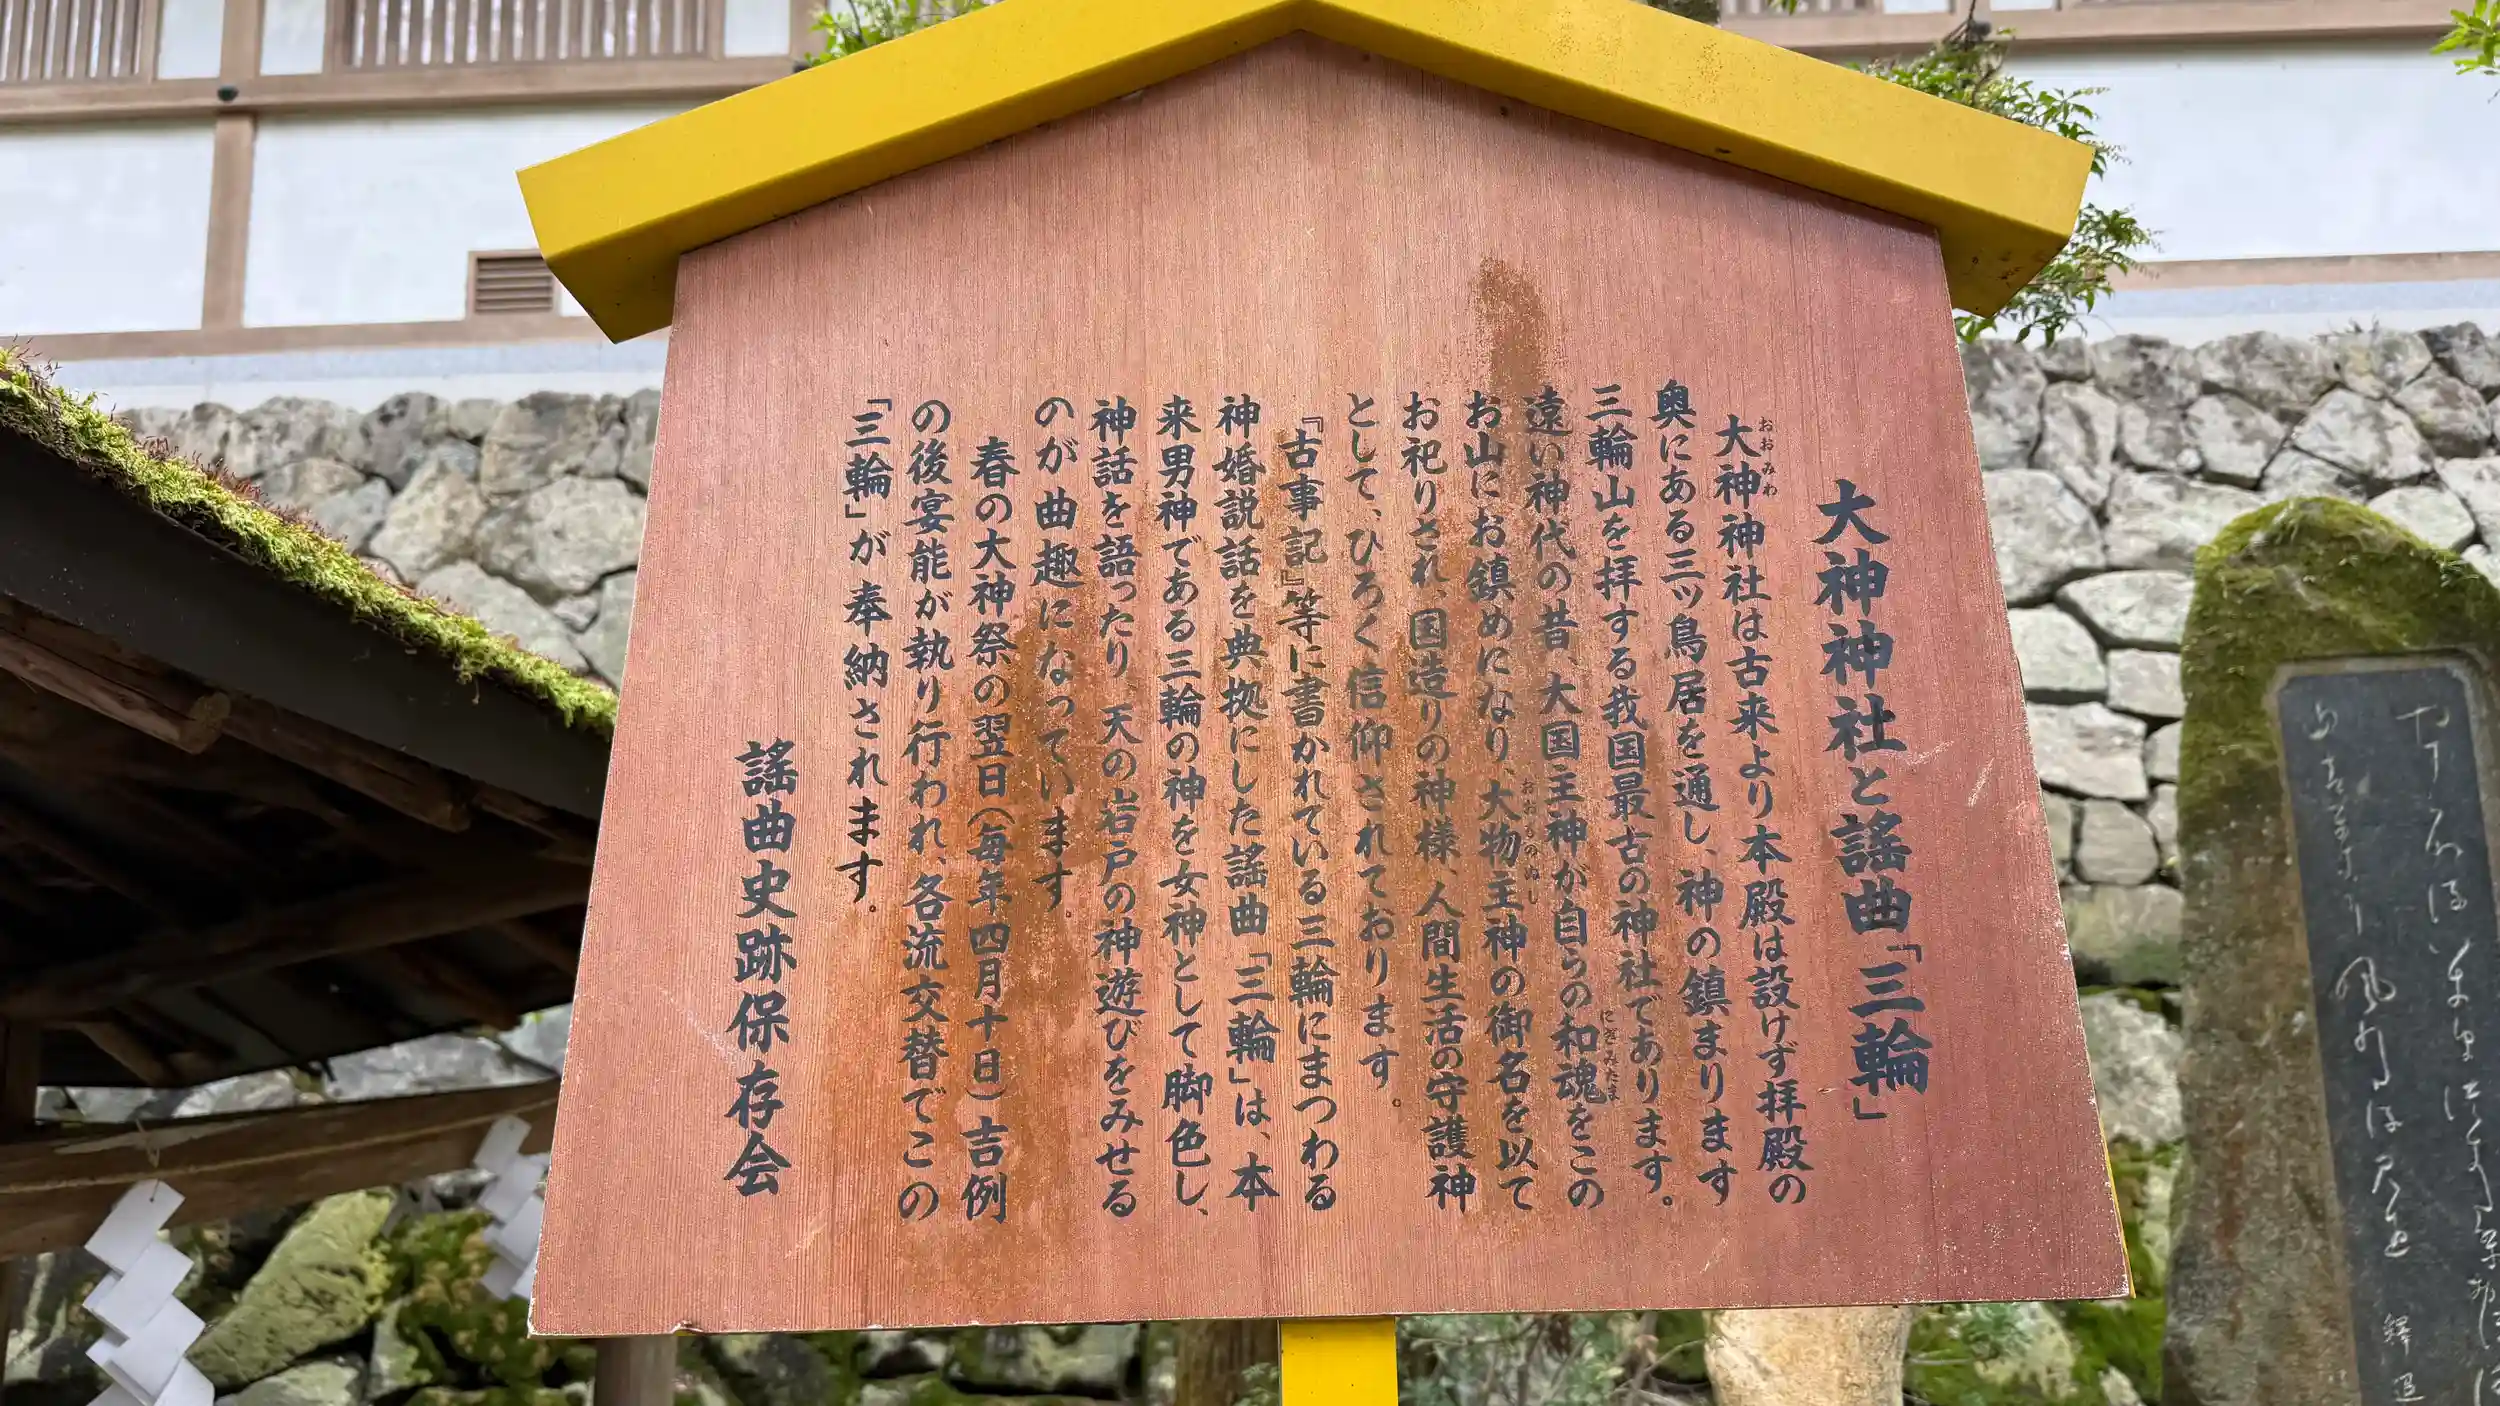 大神神社と謡曲「三輪」
大神神社は古来より本殿は設けず拝殿の
おおみわ
奥にある三ッ鳥居を通し、神の鎮まります
三輪山を拝する我国最古の神社であります。
遠い神代の昔、大国主神が自らの和魂をこの
にぎみたま
お山にお鎮めになり、大物主神の御名を以て
おおものぬし
お祀りされ、国造りの神様、人間生活の守護神
として、ひろく信仰されております。
『古事記』等に書かれている三輪にまつわる
神婚説話を典拠にした謡曲「三輪」は、本
来男神である三輪の神を女神として脚色し、
神話を語ったり、天の岩戸の神遊びをみせる
のが曲趣になっています。
春の大神祭の翌日(毎年四月十日)吉例
の後宴能が執り行われ、各流交替でこの
「三輪」が奉納されます。
謡曲史跡保存会